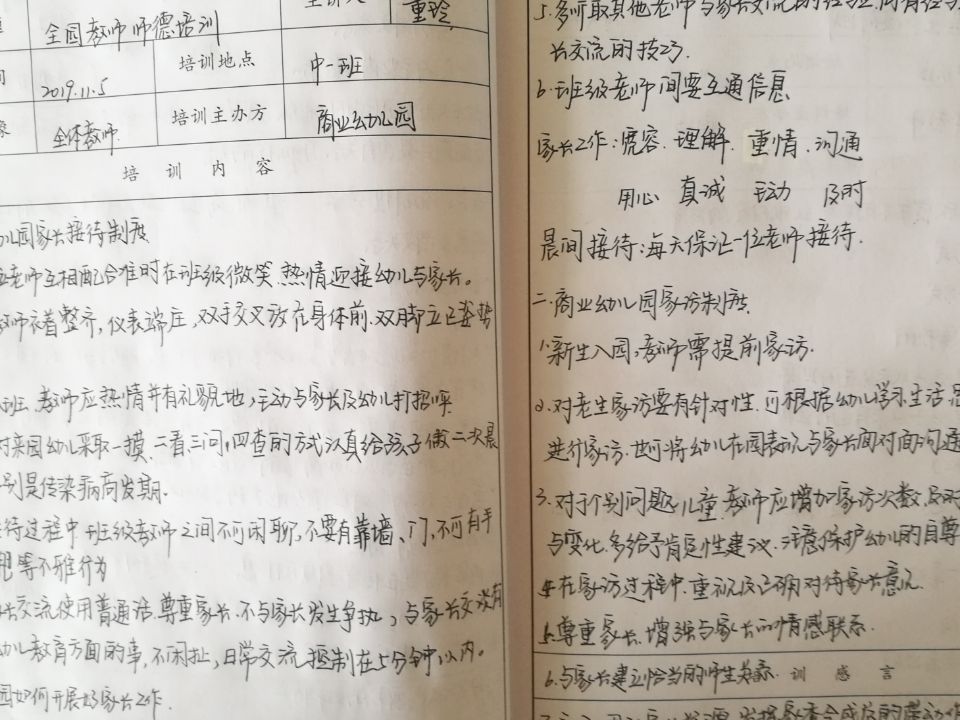 全园教师师德培训
重玲
培训地点
中一班
2019.11.5
全体教师
培训主办方
商业幼儿园
培训内容
儿园家长接待制度
老师互相配合准时在班级微笑、热情迎接幼儿与家长。
师衣着整齐,仪表端庄,双手交叉放在身体前.双脚立正姿势
班、教师应热情并有礼貌地,主动与家长及幼儿打招呼
对来园幼儿采取一摸、二看、三问、四查的方式认真给孩子做二次晨
别是传染病高发期.
待过程中班级教师之间不可闲聊,不要有靠墙、门,不可有手
等不雅行为
长交流使用普通话.尊重家长.不与家长发生争执,与家长交谈有
幼儿教育方面的事,不闲扯,日常交流控制在5分钟以内。
园如何开展好家长工作.
5.多听取其他老师与家长交流的经验,
长交流的技巧.
6.班级老师间要互通信息
家长工作:宽容.理解.重情.沟通
用心 真诚 主动 及时
晨间接待:每天保证一位老师接待.
二.商业幼儿园家访制度
1.新生入园,教师需提前家访.
2.对老生家访要有针对性.可根据幼儿学习生活
进行家访.也可将幼儿在园表现与家长面对面沟通
3.对于个别问题儿童.教师应增加家访次数,及时
与变化.多给予肯定性建议.注意保护幼儿的自尊
4.在家访过程中.重视及正确对待家长意见
5.尊重家长.增强与家长的情感联系.
6.与家长建立恰当的师生关系. 训感言